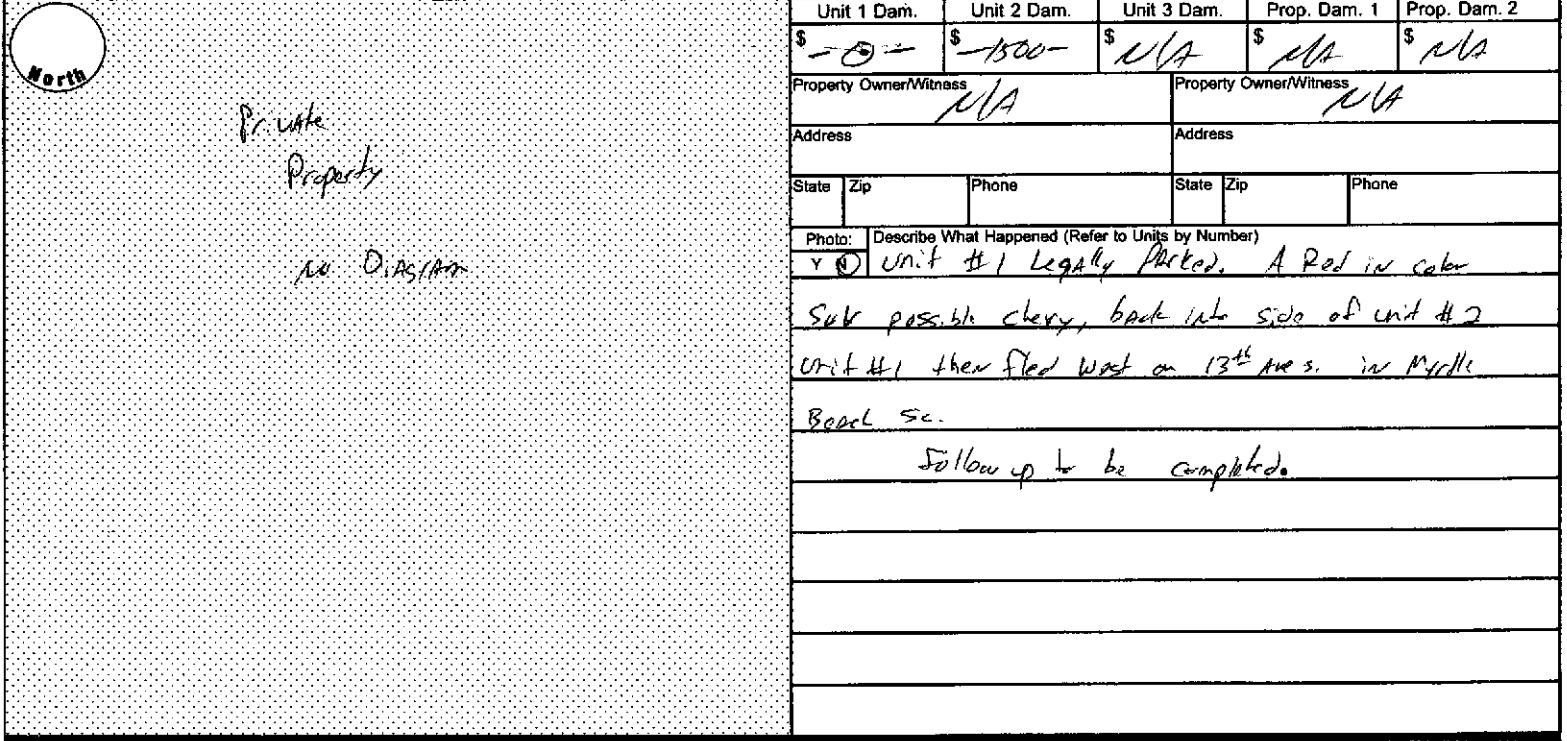 North
Private
Property
No Diagram
Unit 1 Dam. Unit 2 Dam. Unit 3 Dam. Prop. Dam. 1 Prop. Dam. 2
$ -0- $ -1500- $ N/A $ N/A $ N/A
Property Owner/Witness N/A Property Owner/Witness N/A
Address Address
State Zip Phone State Zip Phone
Photo: Describe What Happened (Refer to Units by Number)
Y N Unit #1 Legally Parked. A Red in color
SUV possible chevy, back into side of unit #2
Unit #1 then fled West on 13th Ave s. in Myrtle
Beach Sc.
Follow up to be completed.